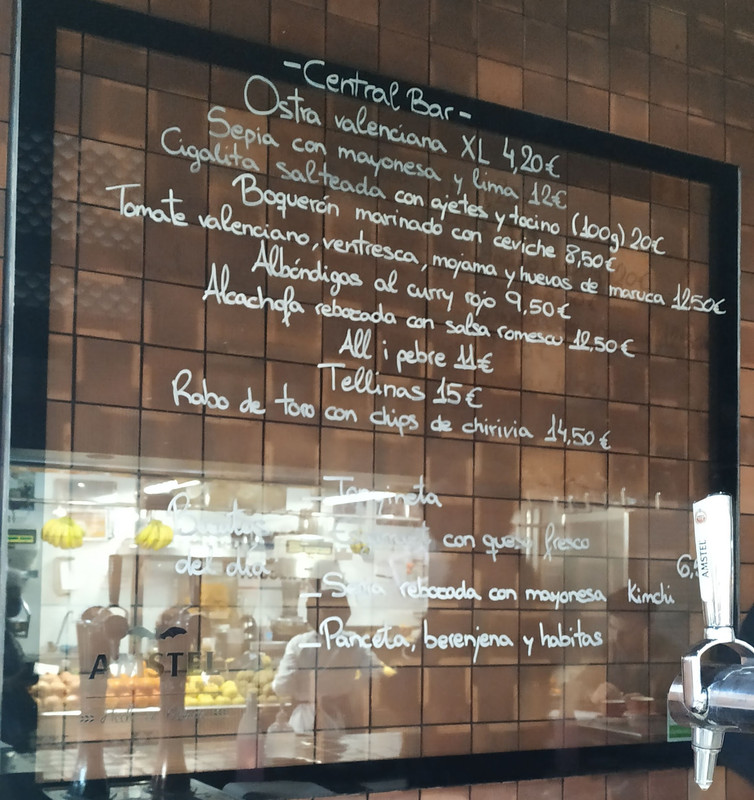 -Central Bar-
Ostra valenciana XL 4,20€
Sepia con mayonesa y lima 12€
Cigalita salteada con ajetes y tocino (100g) 20€
Boquerón marinado con ceviche 8,50€
Tomate valenciano, ventresca, mojama y huevas de maruca 12,50€
Albóndigas al curry rojo 9,50€
Alcachofa rebozada con salsa romescu 12,50€
All i pebre 11€
Tellinas 15€
Rabo de toro con chips de chirivia 14,50€
del día
con queso fresco
- Sepia rebozada con mayonesa Kimchi
- Panceta, berenjena y habitas
AMSTEL
AMSTEL